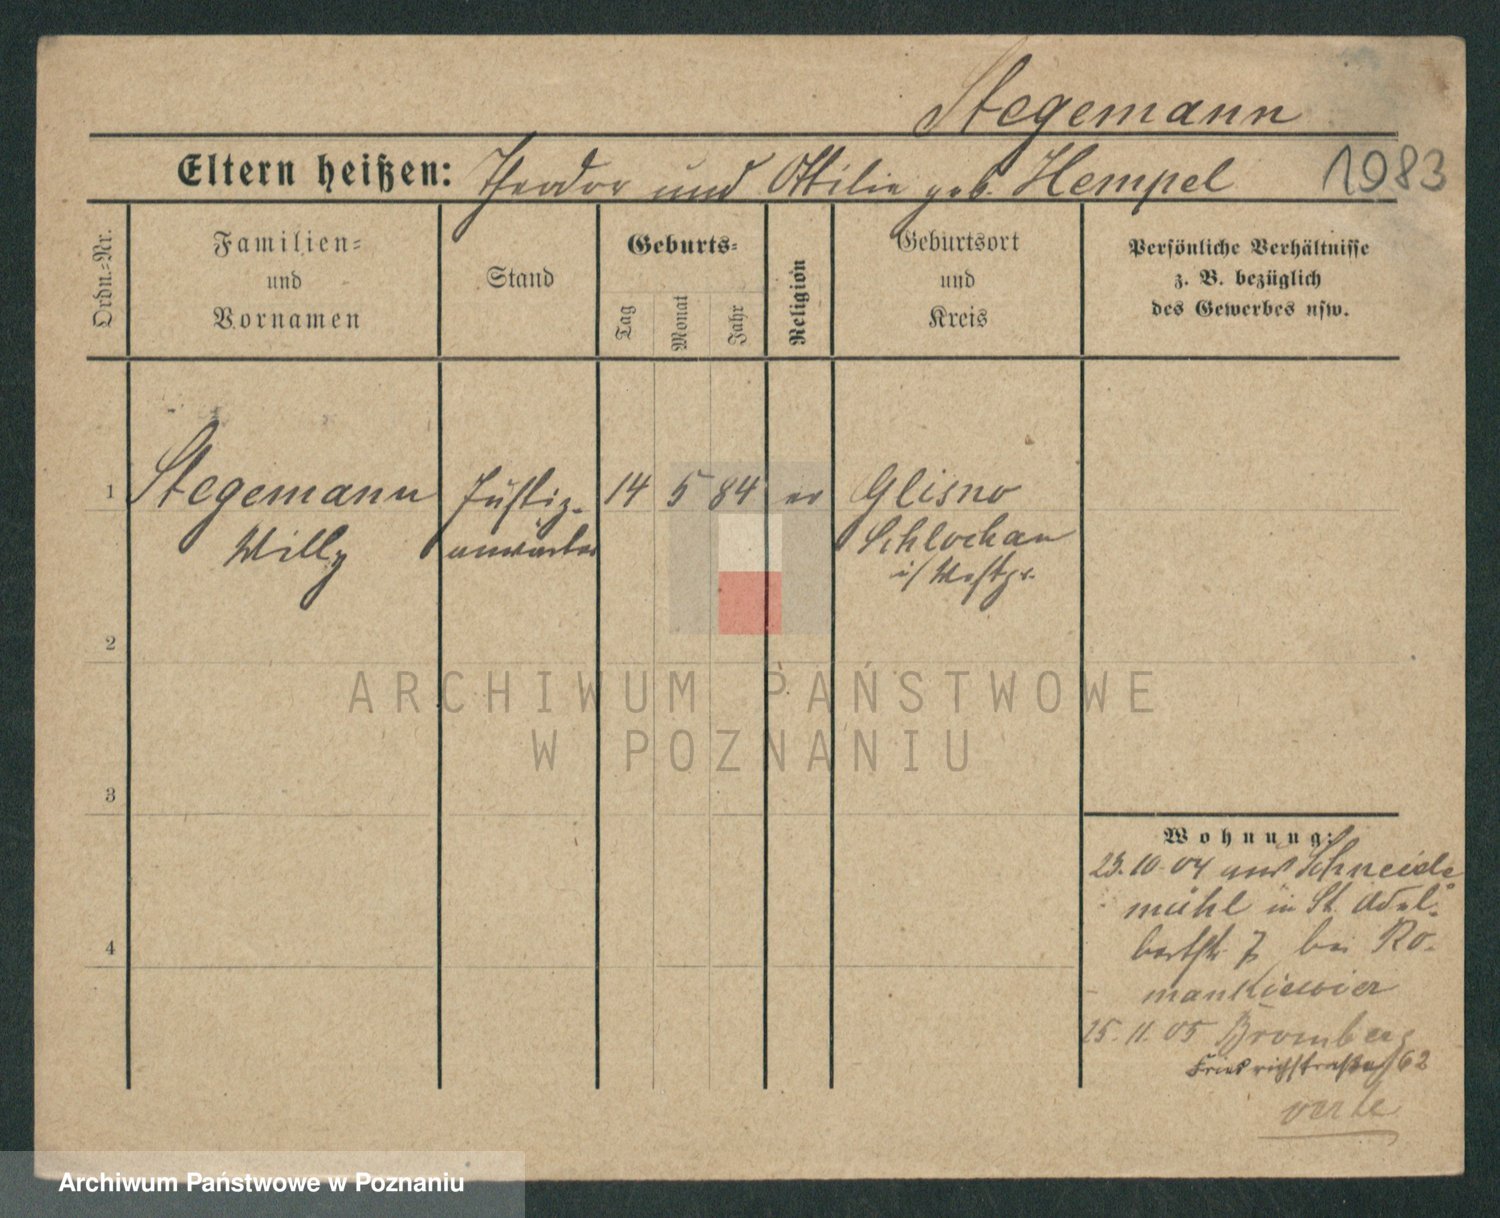 Stegemann
Eltern heißen: Theodor und Ottilie geb. Hempel 1983
Ordn.-Nr.
Familien-
und
Vornamen
Stand
Geburts-
Tag
Monat
Jahr
Religion
Geburtsort
und
Kreis
Persönliche Verhältnisse
z. B. bezüglich
des Gewerbes usw.
1 Stegemann Justiz- 14 5 84 ev Glisno
Willy anwärter Schlochau
i/ Westpr.
2
3
4
Wohnung:
23. 10. 04 aus Schneide
mühl in St. Adal-
bertstr. 7 bei Ro-
mankiewicz
25. 11. 05 Bromberg
Friedrichstraße 62
verte
ARCHIWUM PAŃSTWOWE
W POZNANIU
Archiwum Państwowe w Poznaniu